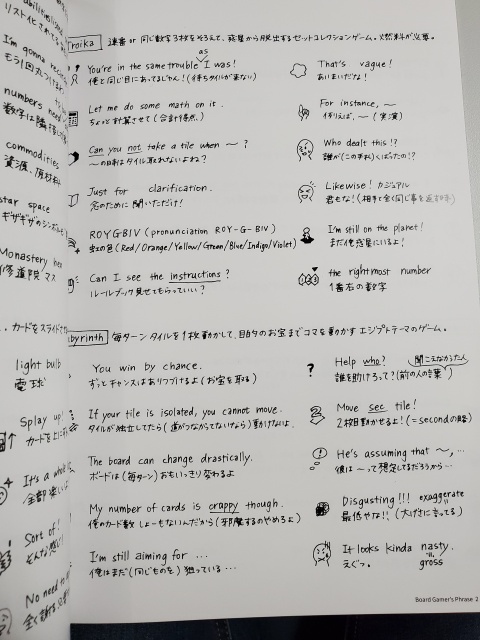 リスト化されてる
I'm gonna
もう1回
numbers need
数字は隣
commodities
資源、原材料
star space
ギザギザのシンボル
Monastery
修道院マス
カードをスライド
light bulb
電球
Splay up!
カードを上に
It's a
全部
Sort of!
そんな感じ!
No need to
全く
Troika 連番 or 同じ数字3枚をそろえて、惑星から脱出するセットコレクションゲーム。燃料が必要。
as
You're in the same trouble I was!
俺と同じ目にあってるじゃん!(待ちタイルが来ない)
Let me do some math on it.
ちょっと計算させて(合計得点)
Can you not take a tile when ~ ?
~の時はタイル取れないよね?
Just for clarification.
念のために聞いただけ!
ROYGBIV (pronunciation ROY-G-BIV)
虹の色(Red/Orange/Yellow/Green/Blue/Indigo/Violet)
Can I see the instructions?
ルールブック見せてもらっていい?
That's vague!
あいまいだな!
For instance, ~
例えば、~(実演)
Who dealt this!?
誰が(この手札)くばったの!?
Likewise! カジュアル
君もな!(相手と全く同じ事を返す時)
I'm still on the planet!
まだ俺惑星にいるよ!
the rightmost number
1番右の数字
Labyrinth 毎ターンタイルを1枚動かして、目的のお宝までコマを動かすエジプトテーマのゲーム。
You win by chance.
ずっとチャンスはありつづけるよ(お宝を取る)
If your tile is isolated, you cannot move.
タイルが独立してたら(道がつながってないなら)動けないよ。
The board can change drastically.
ボードは(毎ターン)おもいっきり変わるよ
My number of cards is crappy though.
俺のカード数しょーもないんだから(邪魔するのやめろよ)
I'm still aiming for ...
俺はまだ(同じものを)狙っている...
Help who? 聞こえなかった人
誰を助けろって?(前の人の言葉)
Move sec tile!
2枚目動かせるよ!(=secondの略)
He's assuming that ~, ...
彼は~って想定してるだろうから...
Disgusting!!! exaggerate
最低やな!!(大げさに言ってる)
It looks kinda nasty.
えぐっ。 gross
Board Gamer's Phrase 2